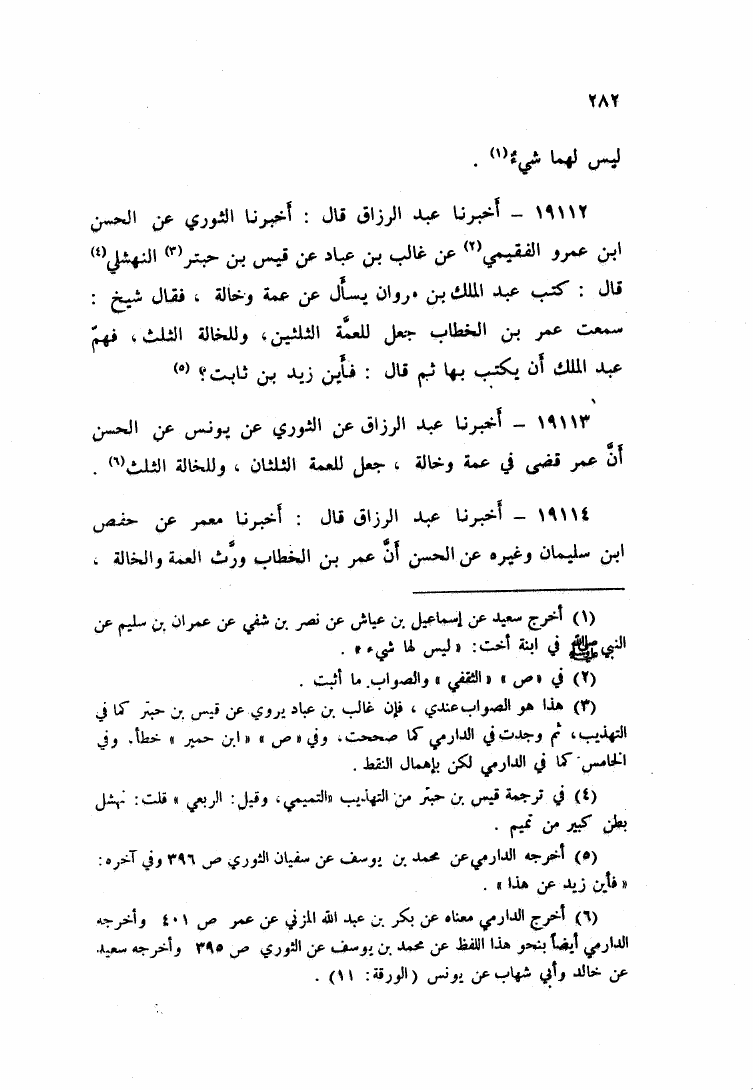 ٢٨٢
ليس لهما شيءٌ(١) .
١٩١١٢ – أخبرنا عبد الرزاق قال : أخبرنا الثوري عن الحسن
ابن عمرو الفقيمي(٢) عن غالب بن عباد عن قيس بن حبتر(٣) النهشلي(٤)
قال : كتب عبد الملك بن مروان يسأل عن عمة وخالة ، فقال شيخ :
سمعت عمر بن الخطاب جعل للعمَّة الثلثين، وللخالة الثلث، فهمّ
عبد الملك أن يكتب بها ثم قال : فأَين زيد بن ثابت؟ (٥)
١٩١١٣ – أخبرنا عبد الرزاق عن الثوري عن يونس عن الحسن
أنَّ عمر قضى في عمة وخالة ، جعل للعمة الثلثان ، وللخالة الثلث(٦) .
١٩١١٤ – أخبرنا عبد الرزاق قال : أخبرنا معمر عن حفص
ابن سليمان وغيره عن الحسن أنَّ عمر بن الخطاب ورَّث العمة والخالة ،
(١) أخرج سعيد عن إسماعيل بن عياش عن نصر بن شفي عن عمران بن سليم عن
النبي ﷺ في ابنة أخت: « ليس لها شيء » .
(٢) في « ص » « الثقفي » والصواب ما أثبت .
(٣) هذا هو الصواب عندي ، فإن غالب بن عباد يروي عن قيس بن حبتر كما في
التهذيب، ثم وجدت في الدارمي كما صححت، وفي « ص » « ابن حمير » خطأ. وفي
الخامس كما في الدارمي لكن بإهمال النقط .
(٤) في ترجمة قيس بن حبتر من التهذيب «التميمي، وقيل: الربعي » قلت: نهشل
بطن كبير من تميم .
(٥) أخرجه الدارمي عن محمد بن يوسف عن سفيان الثوري ص ٣٩٦ وفي آخره:
« فأين زيد عن هذا » .
(٦) أخرج الدارمي معناه عن بكر بن عبد الله المزني عن عمر ص ٤٠١ وأخرجه
الدارمي أيضاً بنحو هذا اللفظ عن محمد بن يوسف عن الثوري ص ٣٩٥ وأخرجه سعيد
عن خالد وأبي شهاب عن يونس (الورقة: ١١) .